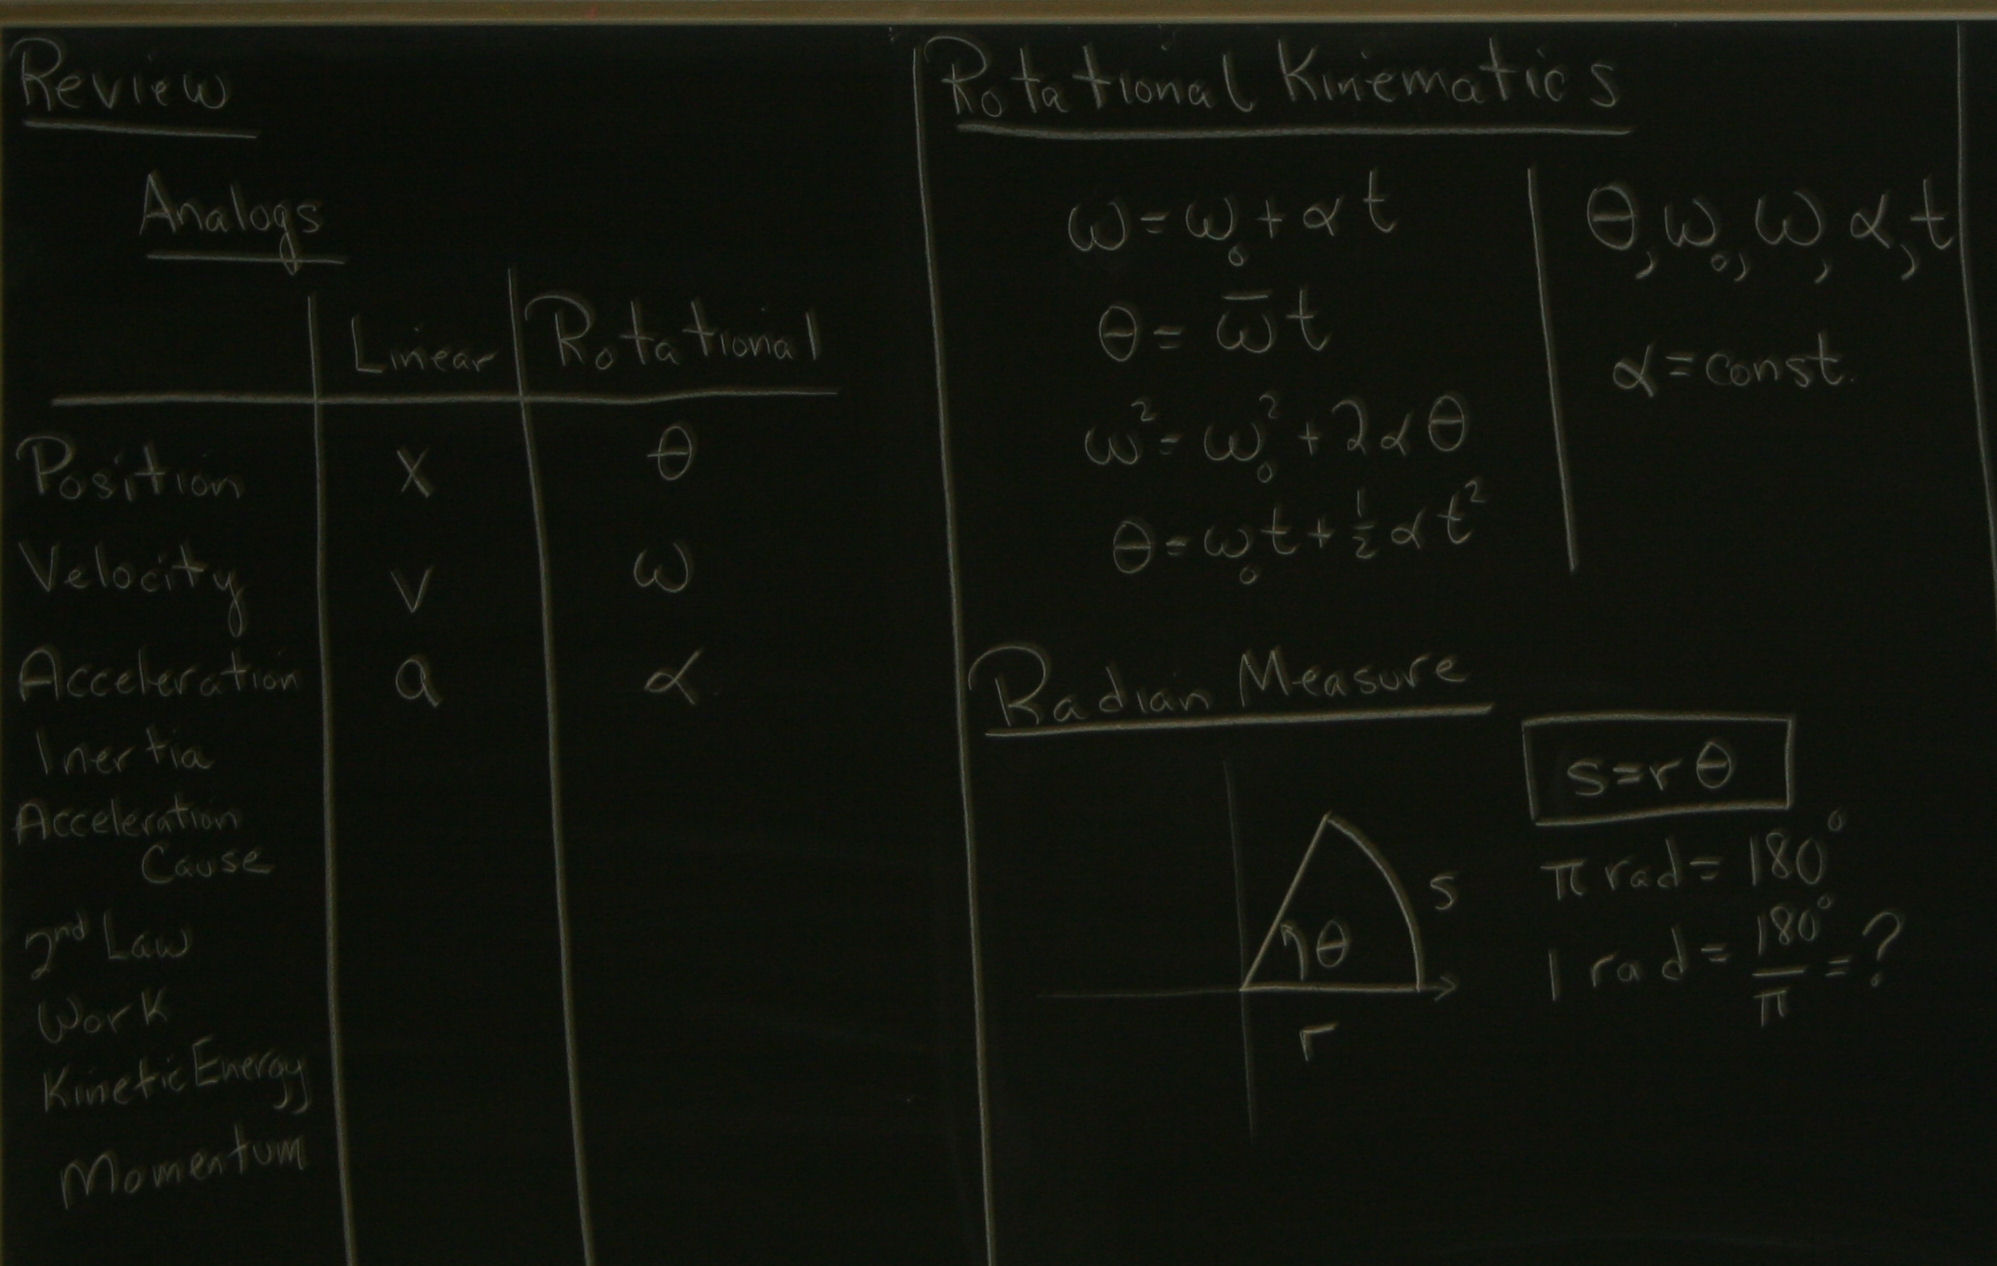 Review
Analogs
Linear Rotational
Position x θ
Velocity v ω
Acceleration a α
Inertia
Acceleration
Cause
2nd Law
Work
Kinetic Energy
Momentum
Rotational Kinematics
ω = ω₀ + αt
θ = ω̅t
ω² = ω₀² + 2αθ
θ = ω₀t + ½αt²
θ, ω₀, ω, α, t
α = const.
Radian Measure
s
θ
r
s = rθ
π rad = 180°
1 rad = 180°/π = ?